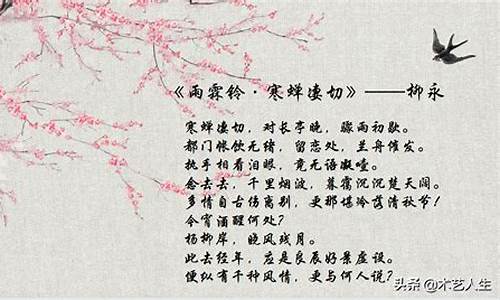 《雨霖铃·寒蝉凄切》——柳永
寒蝉凄切,对长亭晚,骤雨初歇。
都门帐饮无绪,留恋处,兰舟催发。
执手相看泪眼,竟无语凝噎。
念去去,千里烟波,暮霭沉沉楚天阔。
多情自古伤离别,更那堪冷落清秋节!
今宵酒醒何处?
杨柳岸,晓风残月。
此去经年,应是良辰好景虚设。
便纵有千种风情,更与何人说?
头条@木艺人生